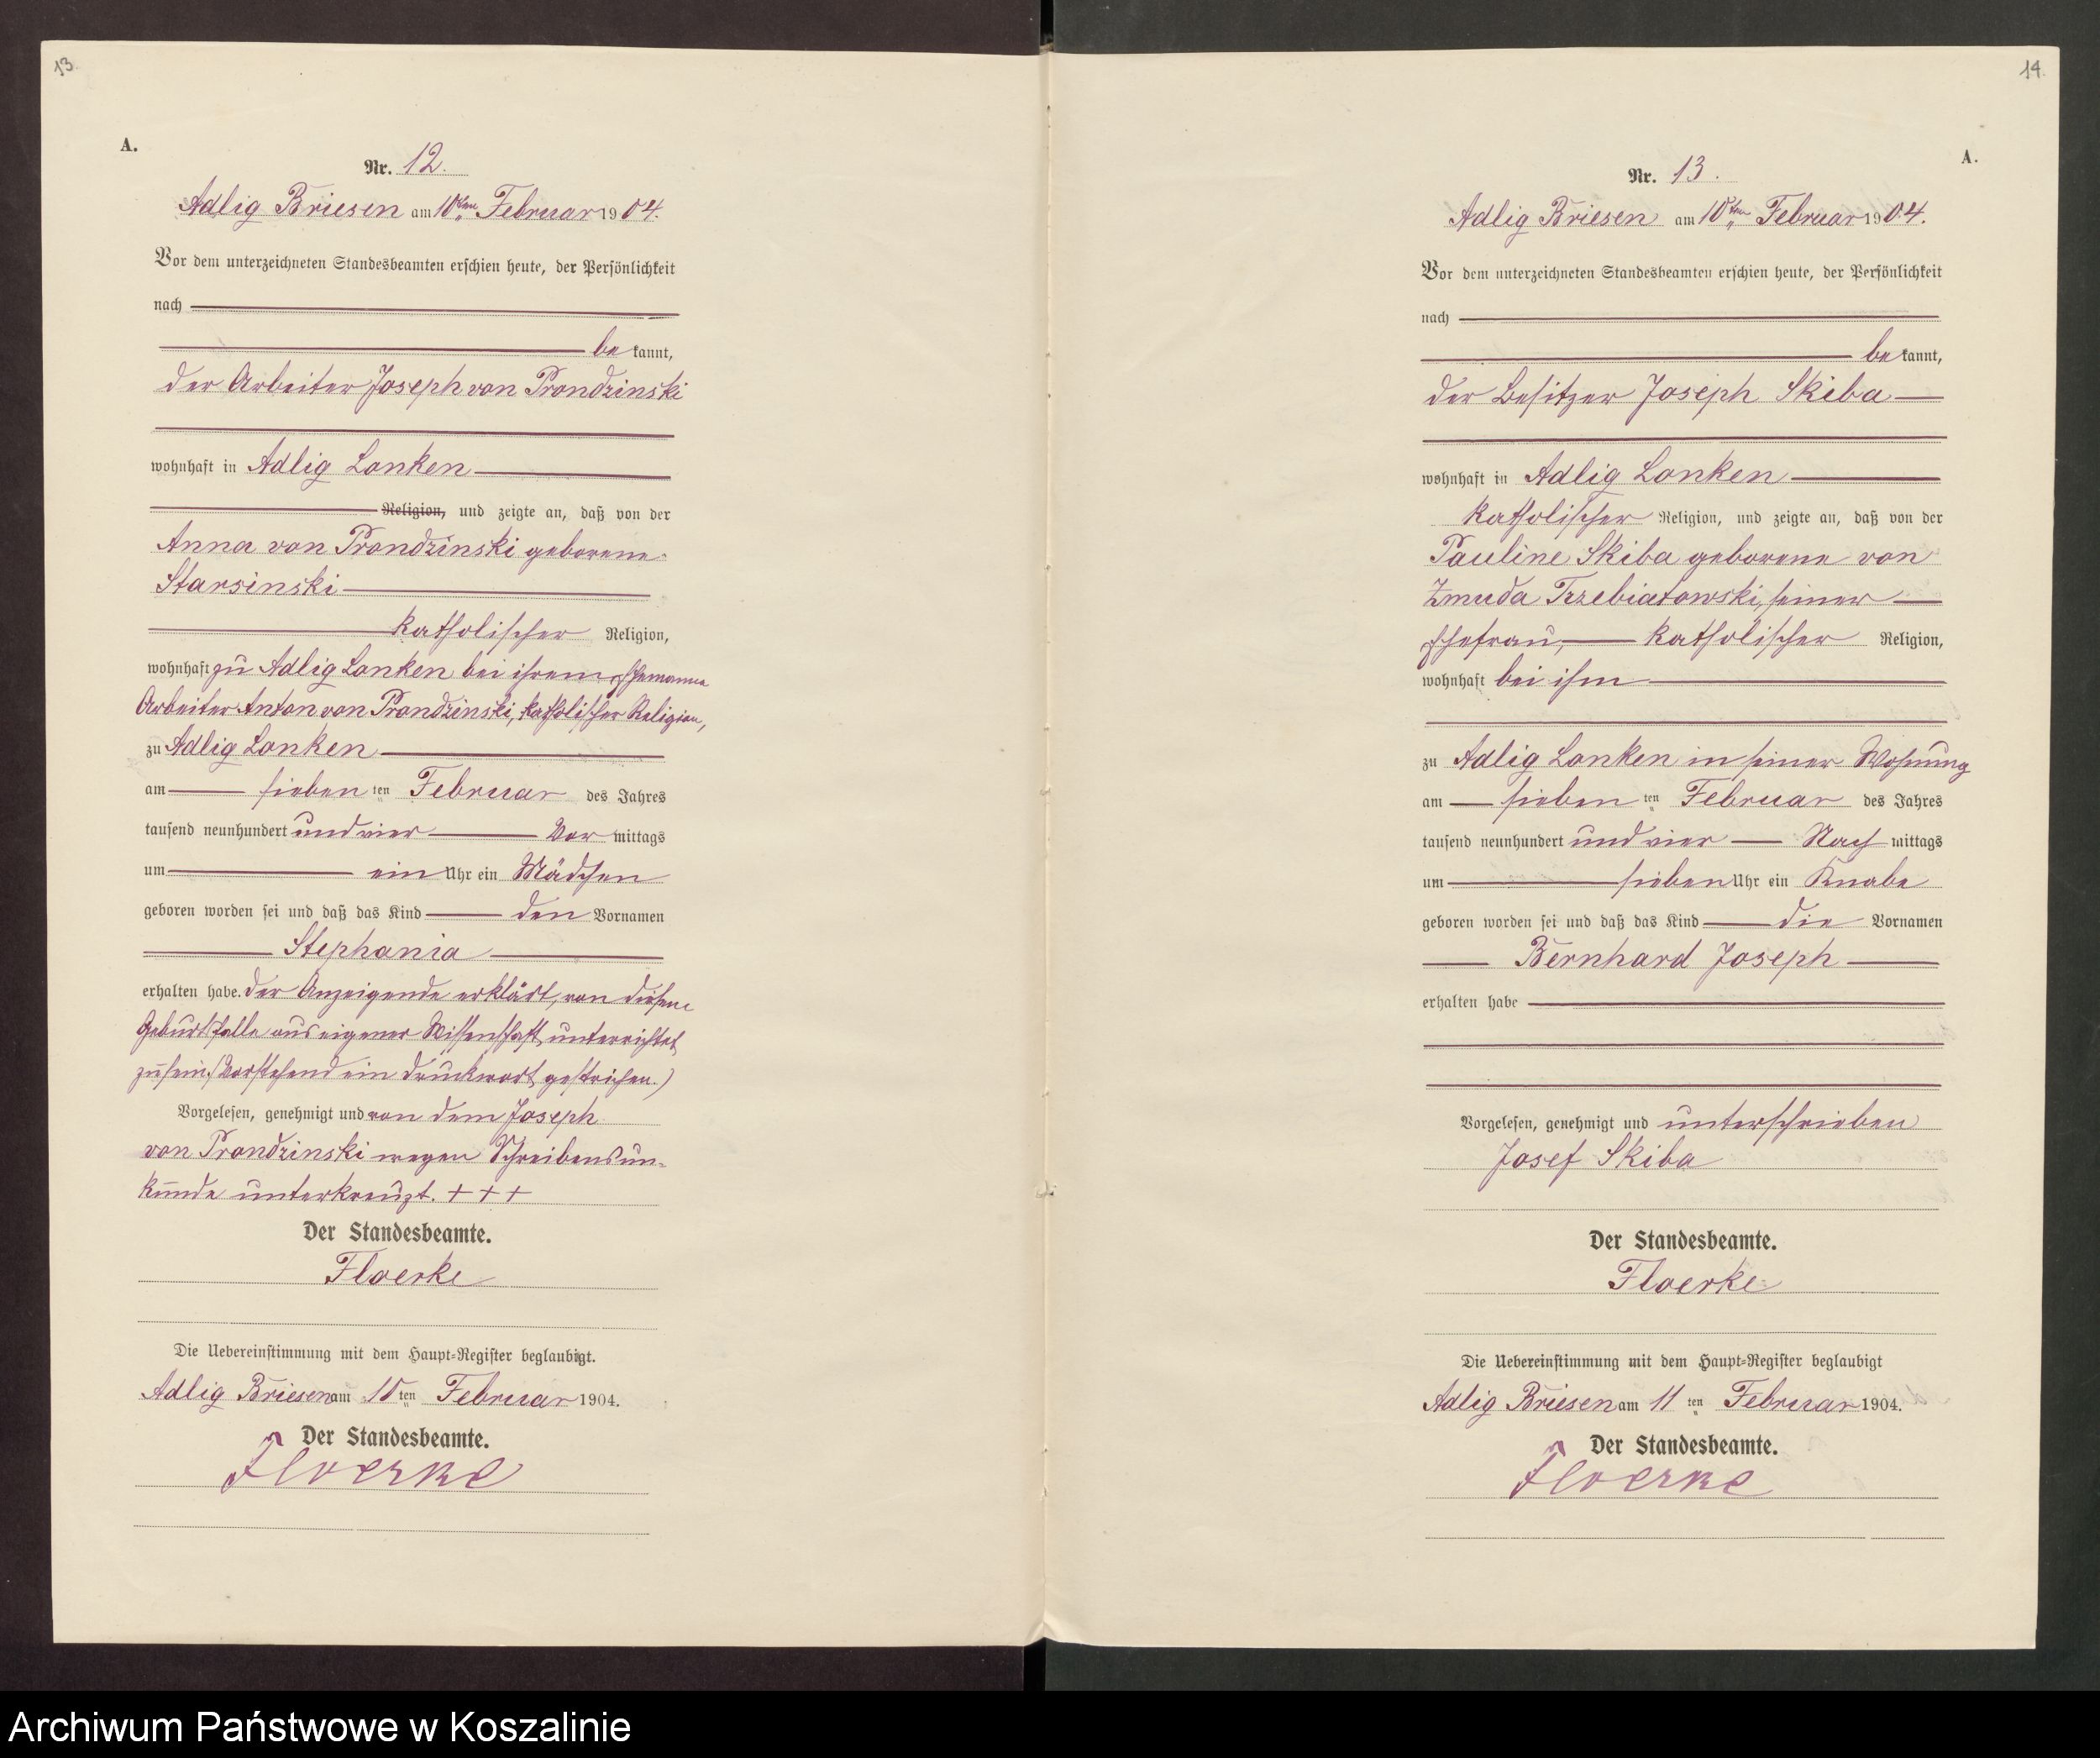 13.
A.
Nr. 12.
Adlig Briesen am 10ten Februar 1904.
Vor dem unterzeichneten Standesbeamten erschien heute, der Persönlichkeit
nach
be kannt,
der Arbeiter Joseph von Prondzinski
wohnhaft in Adlig Lonken
Religion, und zeigte an, daß von der
Anna von Prondzinski geborene
Starsinski
katholischer Religion,
wohnhaft zu Adlig Lonken bei ihrem Ehemanne
Arbeiter Anton von Prondzinski, katholischer Religion,
zu Adlig Lonken
am sieben ten Februar des Jahres
tausend neunhundert und vier Vor mittags
um ein Uhr ein Mädchen
geboren worden sei und daß das Kind den Vornamen
Stephania
erhalten habe. Der Anzeigende erklärt, von diesem
Geburtsfalle aus eigener Wissenschaft unterrichtet
zu sein. (Vorstehend ein Druckwort gestrichen.)
Vorgelesen, genehmigt und von dem Joseph
von Prondzinski wegen Schreibensun-
kunde unterkreuzt. + + +
Der Standesbeamte.
Floerke
Die Uebereinstimmung mit dem Haupt-Register beglaubigt.
Adlig Briesen am ten Februar 1904.
Der Standesbeamte.
Floerke
14.
A.
Nr. 13.
Adlig Briesen am 10ten Februar 1904.
Vor dem unterzeichneten Standesbeamten erschien heute, der Persönlichkeit
nach
be kannt,
der Besitzer Joseph Skiba
wohnhaft in Adlig Lonken
katholischer Religion, und zeigte an, daß von der
Pauline Skiba geborene von
Zmuda Trzebiatowski, seiner
Ehefrau, katholischer Religion,
wohnhaft bei ihm
zu Adlig Lonken in seiner Wohnung
am sieben ten Februar des Jahres
tausend neunhundert und vier Nach mittags
um sieben Uhr ein Knabe
geboren worden sei und daß das Kind die Vornamen
Bernhard Joseph
erhalten habe
Vorgelesen, genehmigt und unterschrieben
Josef Skiba
Der Standesbeamte.
Floerke
Die Uebereinstimmung mit dem Haupt-Register beglaubigt
Adlig Briesen am 11 ten Februar 1904.
Der Standesbeamte.
Floerke
Archiwum Państwowe w Koszalinie